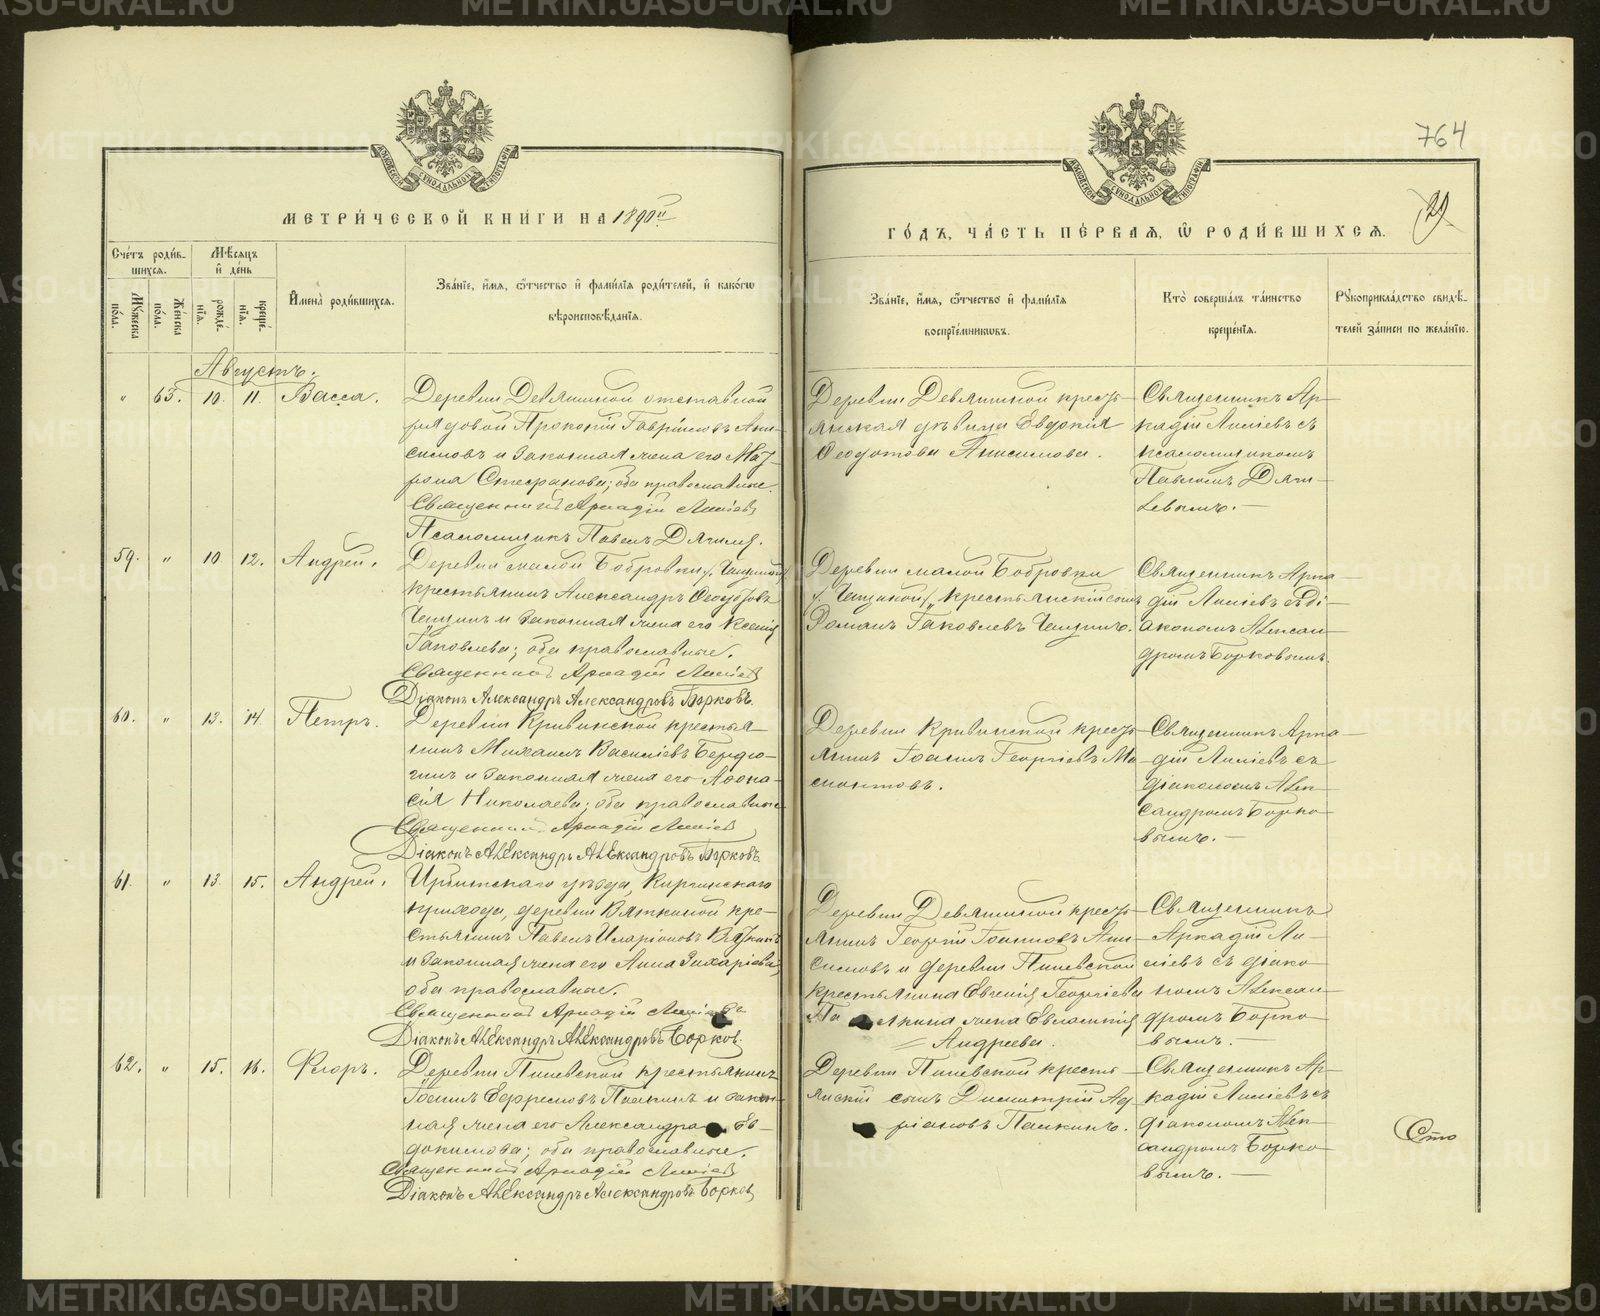 METRIKI.GASO-URAL.RU
764
29
МОСКОВСКОЙ СѴНОДАЛЬНОЙ ТИПОГРАФІИ
МЕТРИ́ЧЕСКОЙ КНИ́ГИ НА 1890й
Сче́тъ роди́в-
шихся.
Мѣ́сяцъ
и҆ де́нь
Му́жеска
по́ла.
Же́нска
по́ла.
рожде́-
нїѧ.
креще́-
нїѧ.
И҆мена̀ роди́вшихсѧ.
Зва́нїе, и҆́мѧ, ѻ҆́тчество и҆ фами́лїѧ роди́телей, и҆ како́гѡ
вѣроисповѣ́данїѧ.
Августъ.
" 63. 10. 11. Васса.
Деревни Девяшиной отставной
рядовой Прокопій Гавріиловъ Ани-
симовъ и законная жена его Мат-
рона Стефанова; оба православные.
Священникъ Аркадій
Псаломщикъ Павелъ Дягилевъ.
59. " 10. 12. Андрей.
Деревни малой Бобровки
крестьянинъ Александръ Ѳеодотовъ
и законная жена его Ксенія
Іаковлева; оба православные.
Священникъ Аркадій
Діаконъ Александръ Александровъ Борковъ.
60. " 12. 14. Петръ.
Деревни Кривинской крестья-
нинъ Михаилъ Василіевъ Бердю-
гинъ и законная жена его Аѳана-
сія Николаева; оба православные
Священникъ Аркадій
Діаконъ Александръ Александровъ Борковъ
61. " 13. 15. Андрей.
Ирбитскаго уѣзда, Киргинскаго
прихода, деревни Вяткиной кре-
стьянинъ Павелъ Иларіоновъ Вяткинъ
и законная жена его Анна Захаріева
оба православные.
Священникъ Аркадій
Діаконъ Александръ Александровъ Борков.
62. " 15. 16. Ѳеоръ.
Деревни крестьянинъ
Іоаннъ Ефремовъ и закон-
ная жена его Александра Ев-
докимова; оба православные.
Священникъ Аркадій
Діаконъ Александръ Александровъ Борков
ГО́ДЪ, ЧА́СТЬ ПЕ́РВАѦ, Ѽ РОДИ́ВШИХСѦ.
Зва́нїе, и҆́мѧ, ѻ҆́тчество и҆ фами́лїѧ
воспрїе́мниковъ.
Кто̀ соверша́лъ та́инство
креще́нїѧ.
Рꙋкоприкла́дство свидѣ́-
телей за́писи по жела́нїю.
Деревни Девяшиной кресть-
янская дѣвица Евдокія
Ѳеодотова Анисимова.
Священникъ Ар-
кадій съ
псаломщикомъ
Павломъ Дяги-
левымъ.
Деревни малой Бобровки
крестьянскій сынъ
Романъ Іаковлевъ
Священникъ Арка-
дій съ ді-
акономъ Алексан-
дромъ Борковымъ.
Деревни Кривинской кресть-
янинъ Іоаннъ Георгіевъ Ма-
монтовъ.
Священникъ Арка-
дій съ
діакономъ Алек-
сандромъ Борко-
вымъ.
Деревни Девяшиной кресть-
янинъ Георгій Іоанновъ Ани-
симовъ и деревни
крестьянина Евгенія Георгіева
жена Евлампія
Андреева.
Священникъ
Аркадій
съ діако-
номъ Алексан-
дромъ Борко-
вымъ.
Деревни кресть-
янскій сынъ Димитрій Ад-
ріановъ
Священникъ Ар-
кадій съ
діакономъ Алек-
сандромъ Борко-
вымъ.
Сто